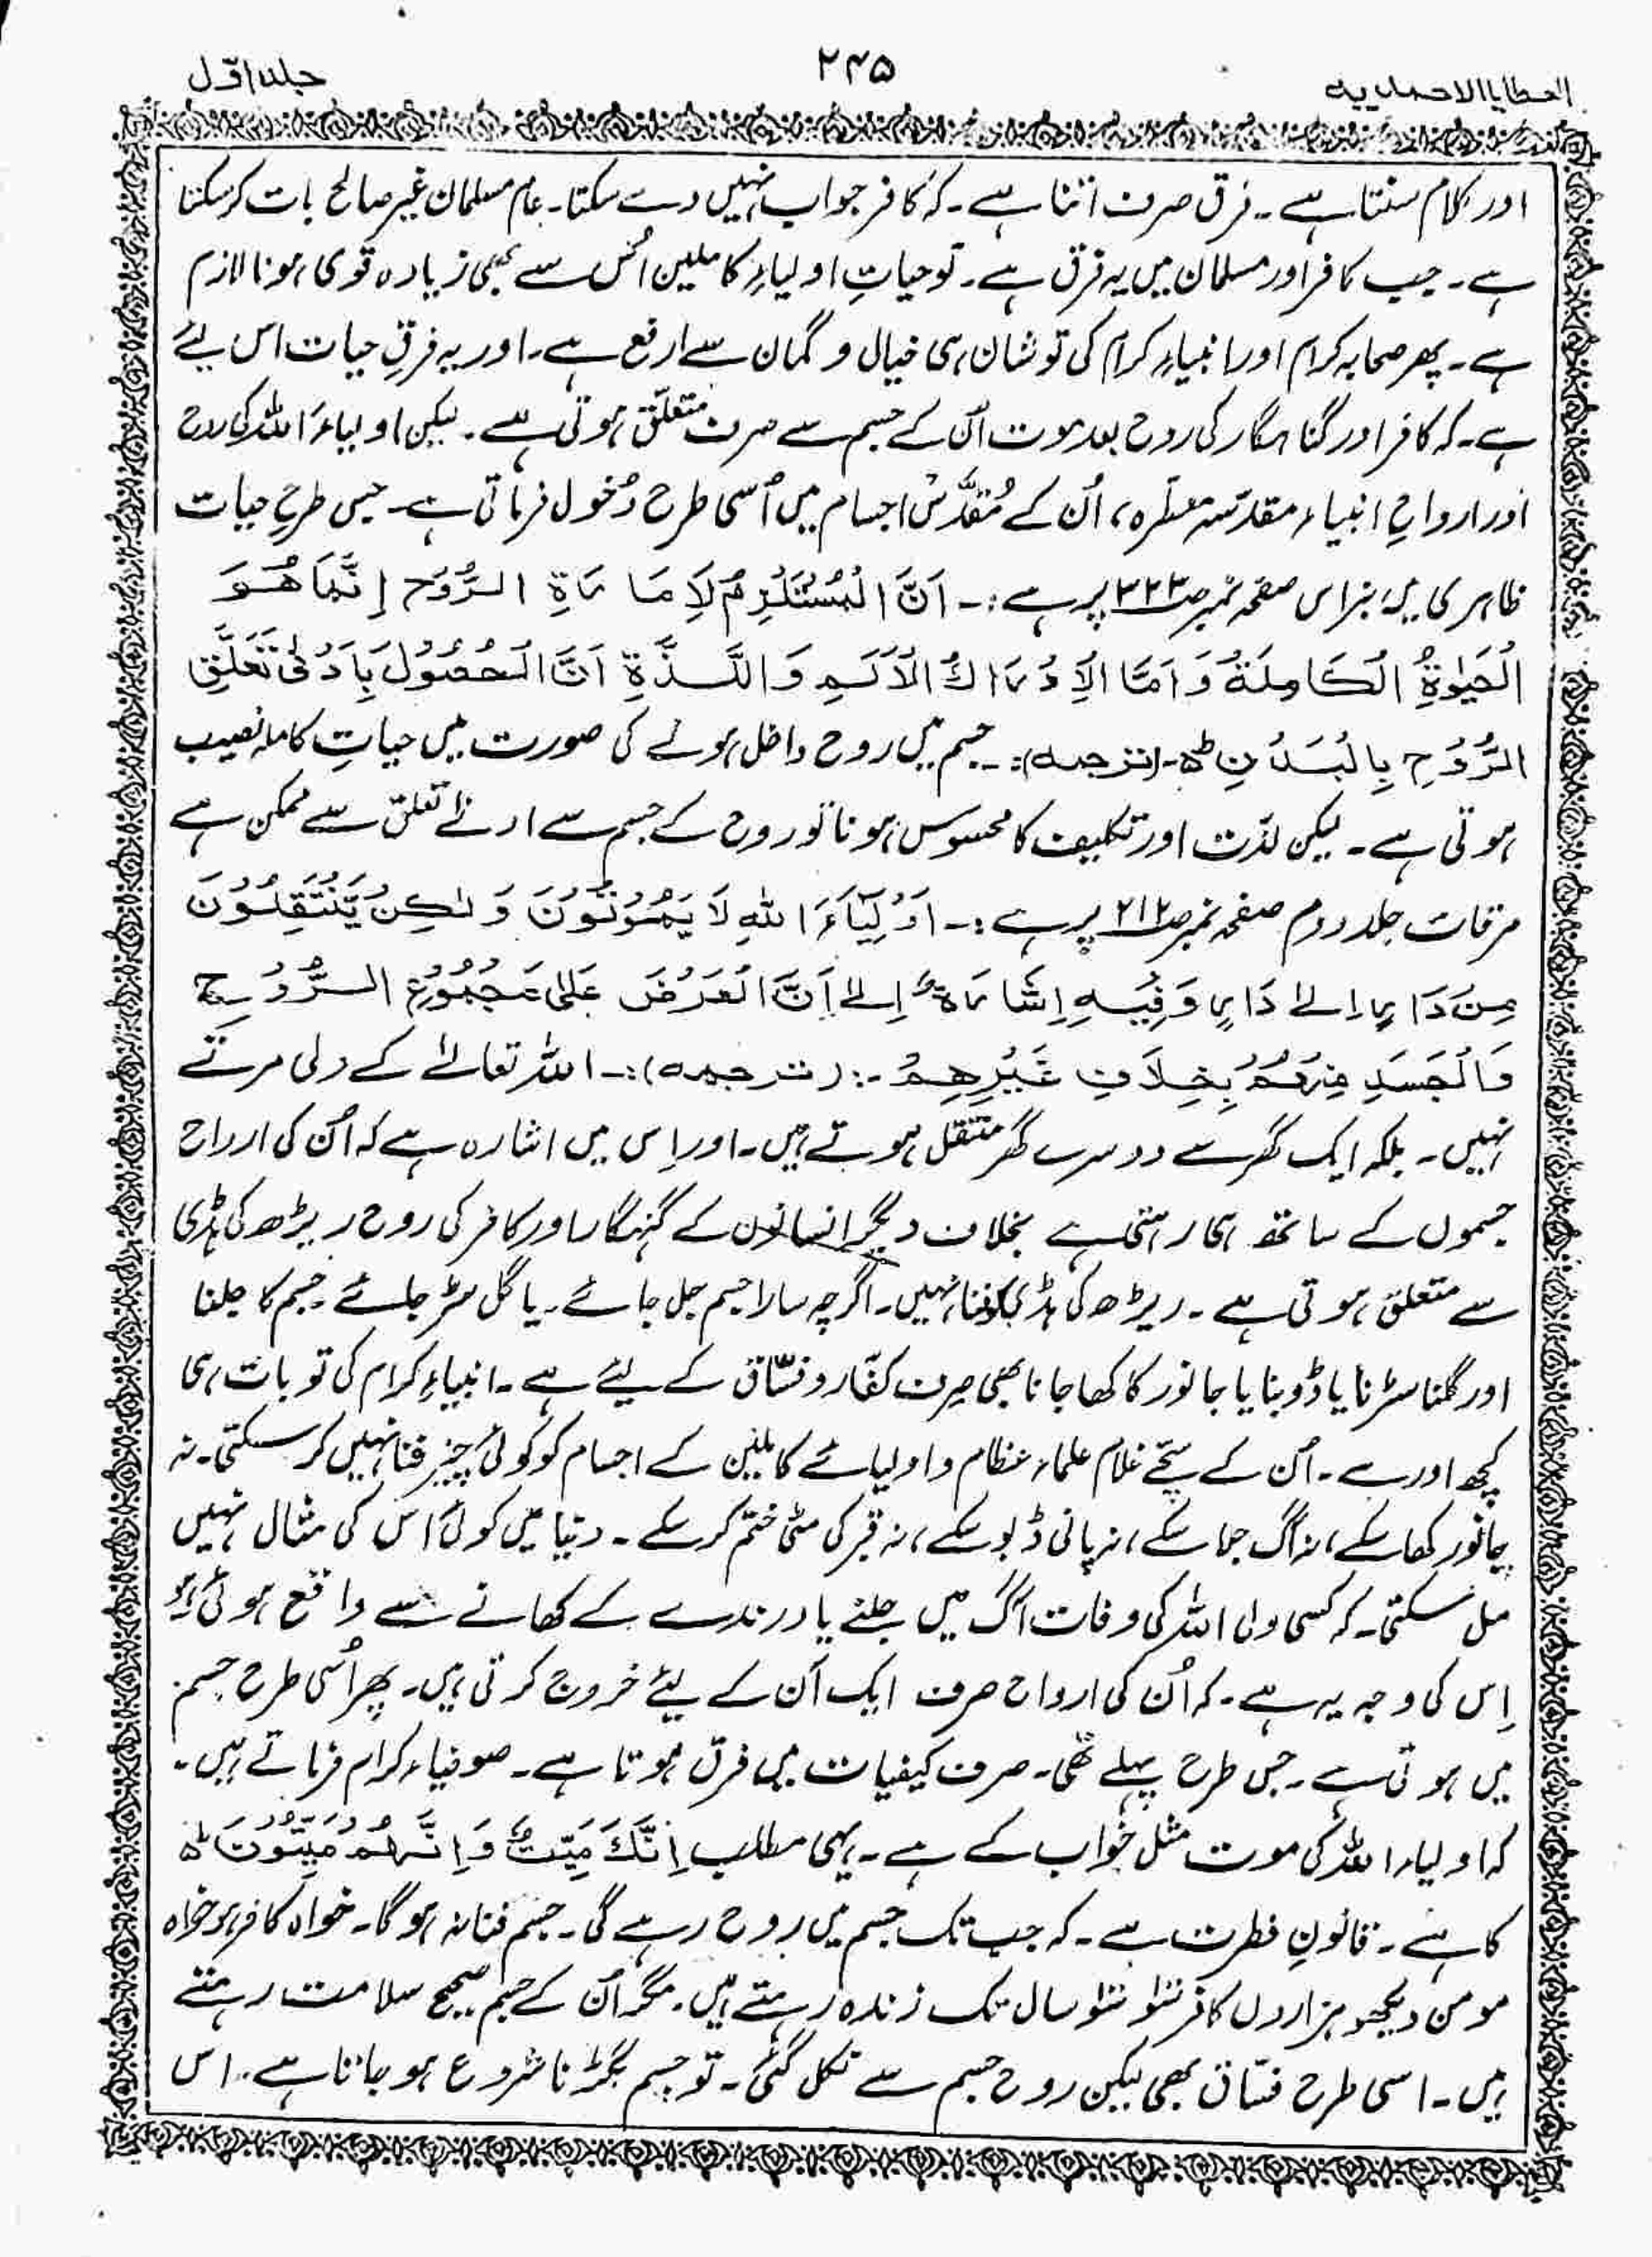 العطایا الاحمدیہ
۲۴۵
جلد اوّل
اور کلام سنتا ہے۔ فرق صرف اتنا ہے۔ کہ کافر جواب نہیں دے سکتا۔ عام مسلمان غیر صالح بات کر سکتا
ہے۔ جب کافر اور مسلمان میں یہ فرق ہے۔ تو حیاتِ اولیاءِ کاملین اُس سے بھی زیادہ قوی ہونا لازم
ہے۔ پھر صحابہ کرام اور انبیاءِ کرام کی تو شان ہی خیال و گمان سے ارفع ہے۔ اور یہ فرقِ حیات اس لیئے
ہے۔ کہ کافر اور گناہگار کی روح بعد موت اُن کے جسم سے صرف متعلّق ہوتی ہے۔ لیکن اولیاءَ اللہ کی روح
اور ارواحِ انبیاء مقدسّہ مطہّرہ، اُن کے مُقدَّس اجسام میں اُسی طرح دُخول فرماتی ہے۔ جیس طرح حیات
ظاہری میں، نبراس صفحہ نمبر ص۳۲۳ پر ہے:۔ اَنَّ الْمُسْتَلْزِمُ لِاِ مَا رَۃِ الرُّوْحِ اِنَّمَا ھُوَ
الْحَیٰوۃُ الْکَامِلَۃُ وَ اَمَّا الْاِدْرَاكُ الْاَلَمِ وَاللَّذَّۃِ اَنَّ الْحُصُوْلَ بِاَدْنٰی تَعَلَّقِ
الرُّوْحِ بِالْبَدَنِ ط۵۔ (ترجمہ):۔ جسم میں روح داخل ہونے کی صورت میں حیاتِ کاملہ نصیب
ہوتی ہے۔ لیکن لذّت اور تکلیف کا محسوس ہونا تو روح کے جسم سے ادنےٰ تعلّق سے ممکن ہے
مرقات جلد دوم صفحہ نمبر ص۲۱۲ پر ہے:۔ اَوْلِیَآءَ اللہِ لَا یَمُوْتُوْنَ وَ لٰکِنْ یَّنْتَقِلُوْنَ
مِنْ دَارٍ اِلےٰ دَارٍ وَفِیْہِ اِشَارَۃٌ اِلےٰ اَنَّ الْعَرْضَ عَلٰی مَجْمُوْعِ الرُّوْحِ
وَالْجَسَدِ مِنْھُمْ بِخِلَافِ غَیْرِھِمْ ۔:(ترجمہ):۔ اللہ تعالےٰ کے ولی مرتے
نہیں۔ بلکہ ایک گھر سے دوسرے گھر منتقل ہوتے ہیں۔ اور اِس میں اشارہ ہے کہ اُن کی ارواح
جسموں کے ساتھ ہی رہتی ہے بخلاف دیگر انسانوں کے گنہگار اور کافر کی روح ریڑھ کی ہڈی
سے متعلق ہوتی ہے۔ ریڑھ کی ہڈی کو فنا نہیں۔ اگرچہ سارا جسم جل جائے۔ یا گل سڑ جائے۔ جسم کا جلنا
اور گلنا سڑنا یا ڈوبنا یا جانور کا کھا جانا بھی صِرف کفّار و فسّاق کے لیئے ہے۔ انبیاءِ کرام کی تو بات ہی
کچھ اور ہے۔ اُن کے سچّے غلام علماءِ عظام و اولیائے کاملین کے اجسام کو کوئی چیز فنا نہیں کر سکتی۔ نہ
جانور کھا سکے، نہ آگ جلا سکے، نہ پانی ڈبو سکے، نہ قبر کی مٹی ختم کر سکے۔ دنیا میں کوئی اس کی مثال نہیں
مل سکتی۔ کہ کسی ولی اللہ کی وفات آگ میں جلنے یا درندے کے کھانے سے واقع ہوئی ہو
اِس کی وجہ یہ ہے۔ کہ اُن کی ارواح صرف ایک آن کے لیئے خروج کرتی ہیں۔ پھر اُسی طرح جسم
میں ہوتی ہے۔ جس طرح پہلے تھی۔ صرف کیفیات میں فرق ہوتا ہے۔ صوفیاء کرام فرماتے ہیں۔
کہ اولیاء اللہ کی موت مثل خواب کے ہے۔ یہی مطلب اِنَّكَ مَیِّتٌ وَاِنَّھُمْ مَیِّتُوْنَ ط۵
کا ہے۔ قانونِ فطرت ہے۔ کہ جب تک جسم میں روح رہے گی۔ جسم فنا نہ ہو گا۔ خواہ کافر ہو خواہ
مومن دیکھو ہزاروں کافر سَو سَو سال تک زندہ رہتے ہیں۔ مگر اُن کے جسم صحیح سلامت رہتے
ہیں۔ اسی طرح فسّاق بھی لیکن روح جسم سے نکل گئی۔ تو جسم بگڑنا شروع ہو جاتا ہے۔ اس